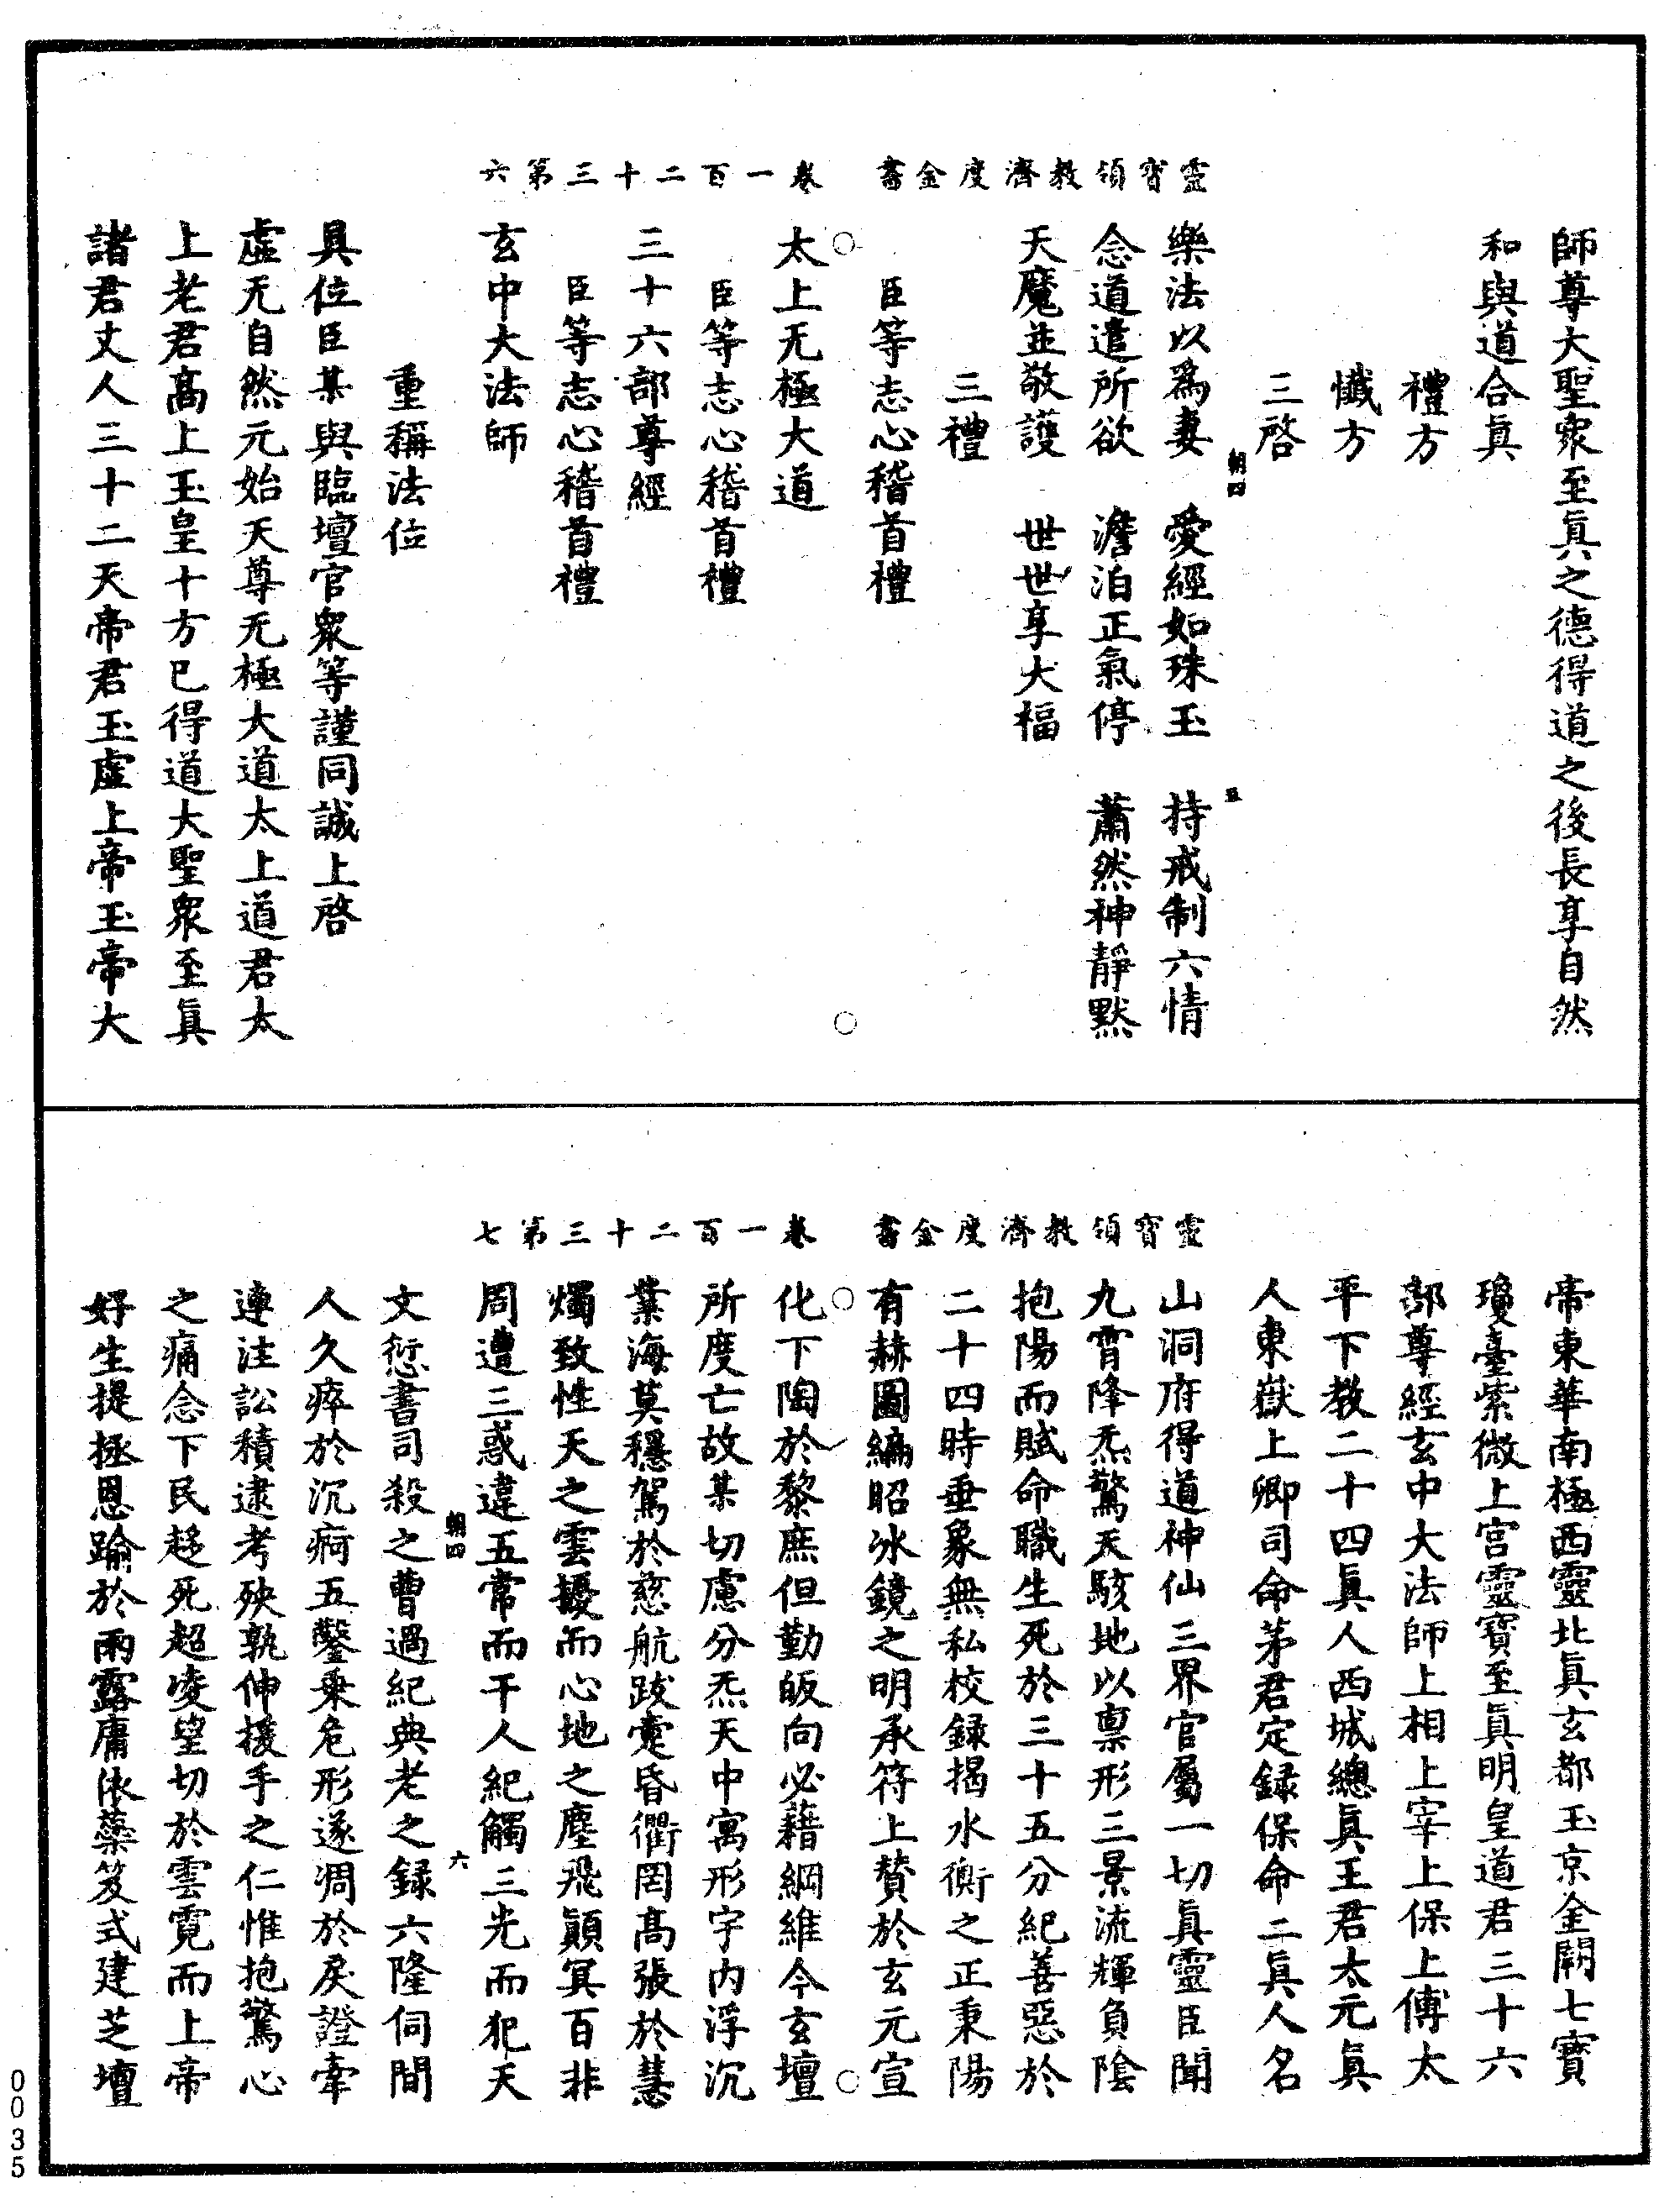 靈寶領教濟度金書　卷一百二十三第六
師尊大聖衆至眞之德得道之後長享自然
和與道合眞
禮方
懺方
三啓
朝四　五
樂法以爲妻　愛經如珠玉　持戒制六情
念道遣所欲　澹泊正氣停　蕭然神靜默
天魔並敬護　世世享大福
三禮
臣等志心稽首禮
太上无極大道
臣等志心稽首禮
三十六部尊經
臣等志心稽首禮
玄中大法師
重稱法位
具位臣某與臨壇官衆等謹同誠上啓
虛无自然元始天尊无極大道太上道君太
上老君高上玉皇十方已得道大聖衆至眞
諸君丈人三十二天帝君玉虛上帝玉帝大
靈寶領教濟度金書　卷一百二十三第七
帝東華南極西靈北眞玄都玉京金闕七寶
瓊臺紫微上宮靈寶至眞明皇道君三十六
部尊經玄中大法師上相上宰上保上傅太
平下教二十四眞人西城總眞王君太元眞
人東嶽上卿司命茅君定録保命二眞人名
山洞府得道神仙三界官屬一切眞靈臣聞
九霄降炁驚天駭地以禀形三景流輝負陰
抱陽而賦命職生死於三十五分紀善惡於
二十四時垂象無私校録揭水衡之正秉陽
有赫圖編昭冰鏡之明承符上贊於玄元宣
化下陶於黎庶但勤皈向必藉綱維今玄壇
所度亡故某切慮分炁天中寓形宇内浮沉
業海莫穩駕於慈航跋疐昏衢罔高張於慧
燭致性天之雲擾而心地之塵飛顚冥百非
周遭三惑違五常而干人紀觸三光而犯天
朝四　六
文愆書司殺之曹過紀典老之録六隆伺間
人久瘁於沉痾五鑿乗危形遂凋於戾證牽
連注訟積逮考殃孰伸援手之仁惟抱驚心
之痛念下民趍死超凌望切於雲霓而上帝
好生提拯恩踰於雨露庸依蘂笈式建芝壇
0035